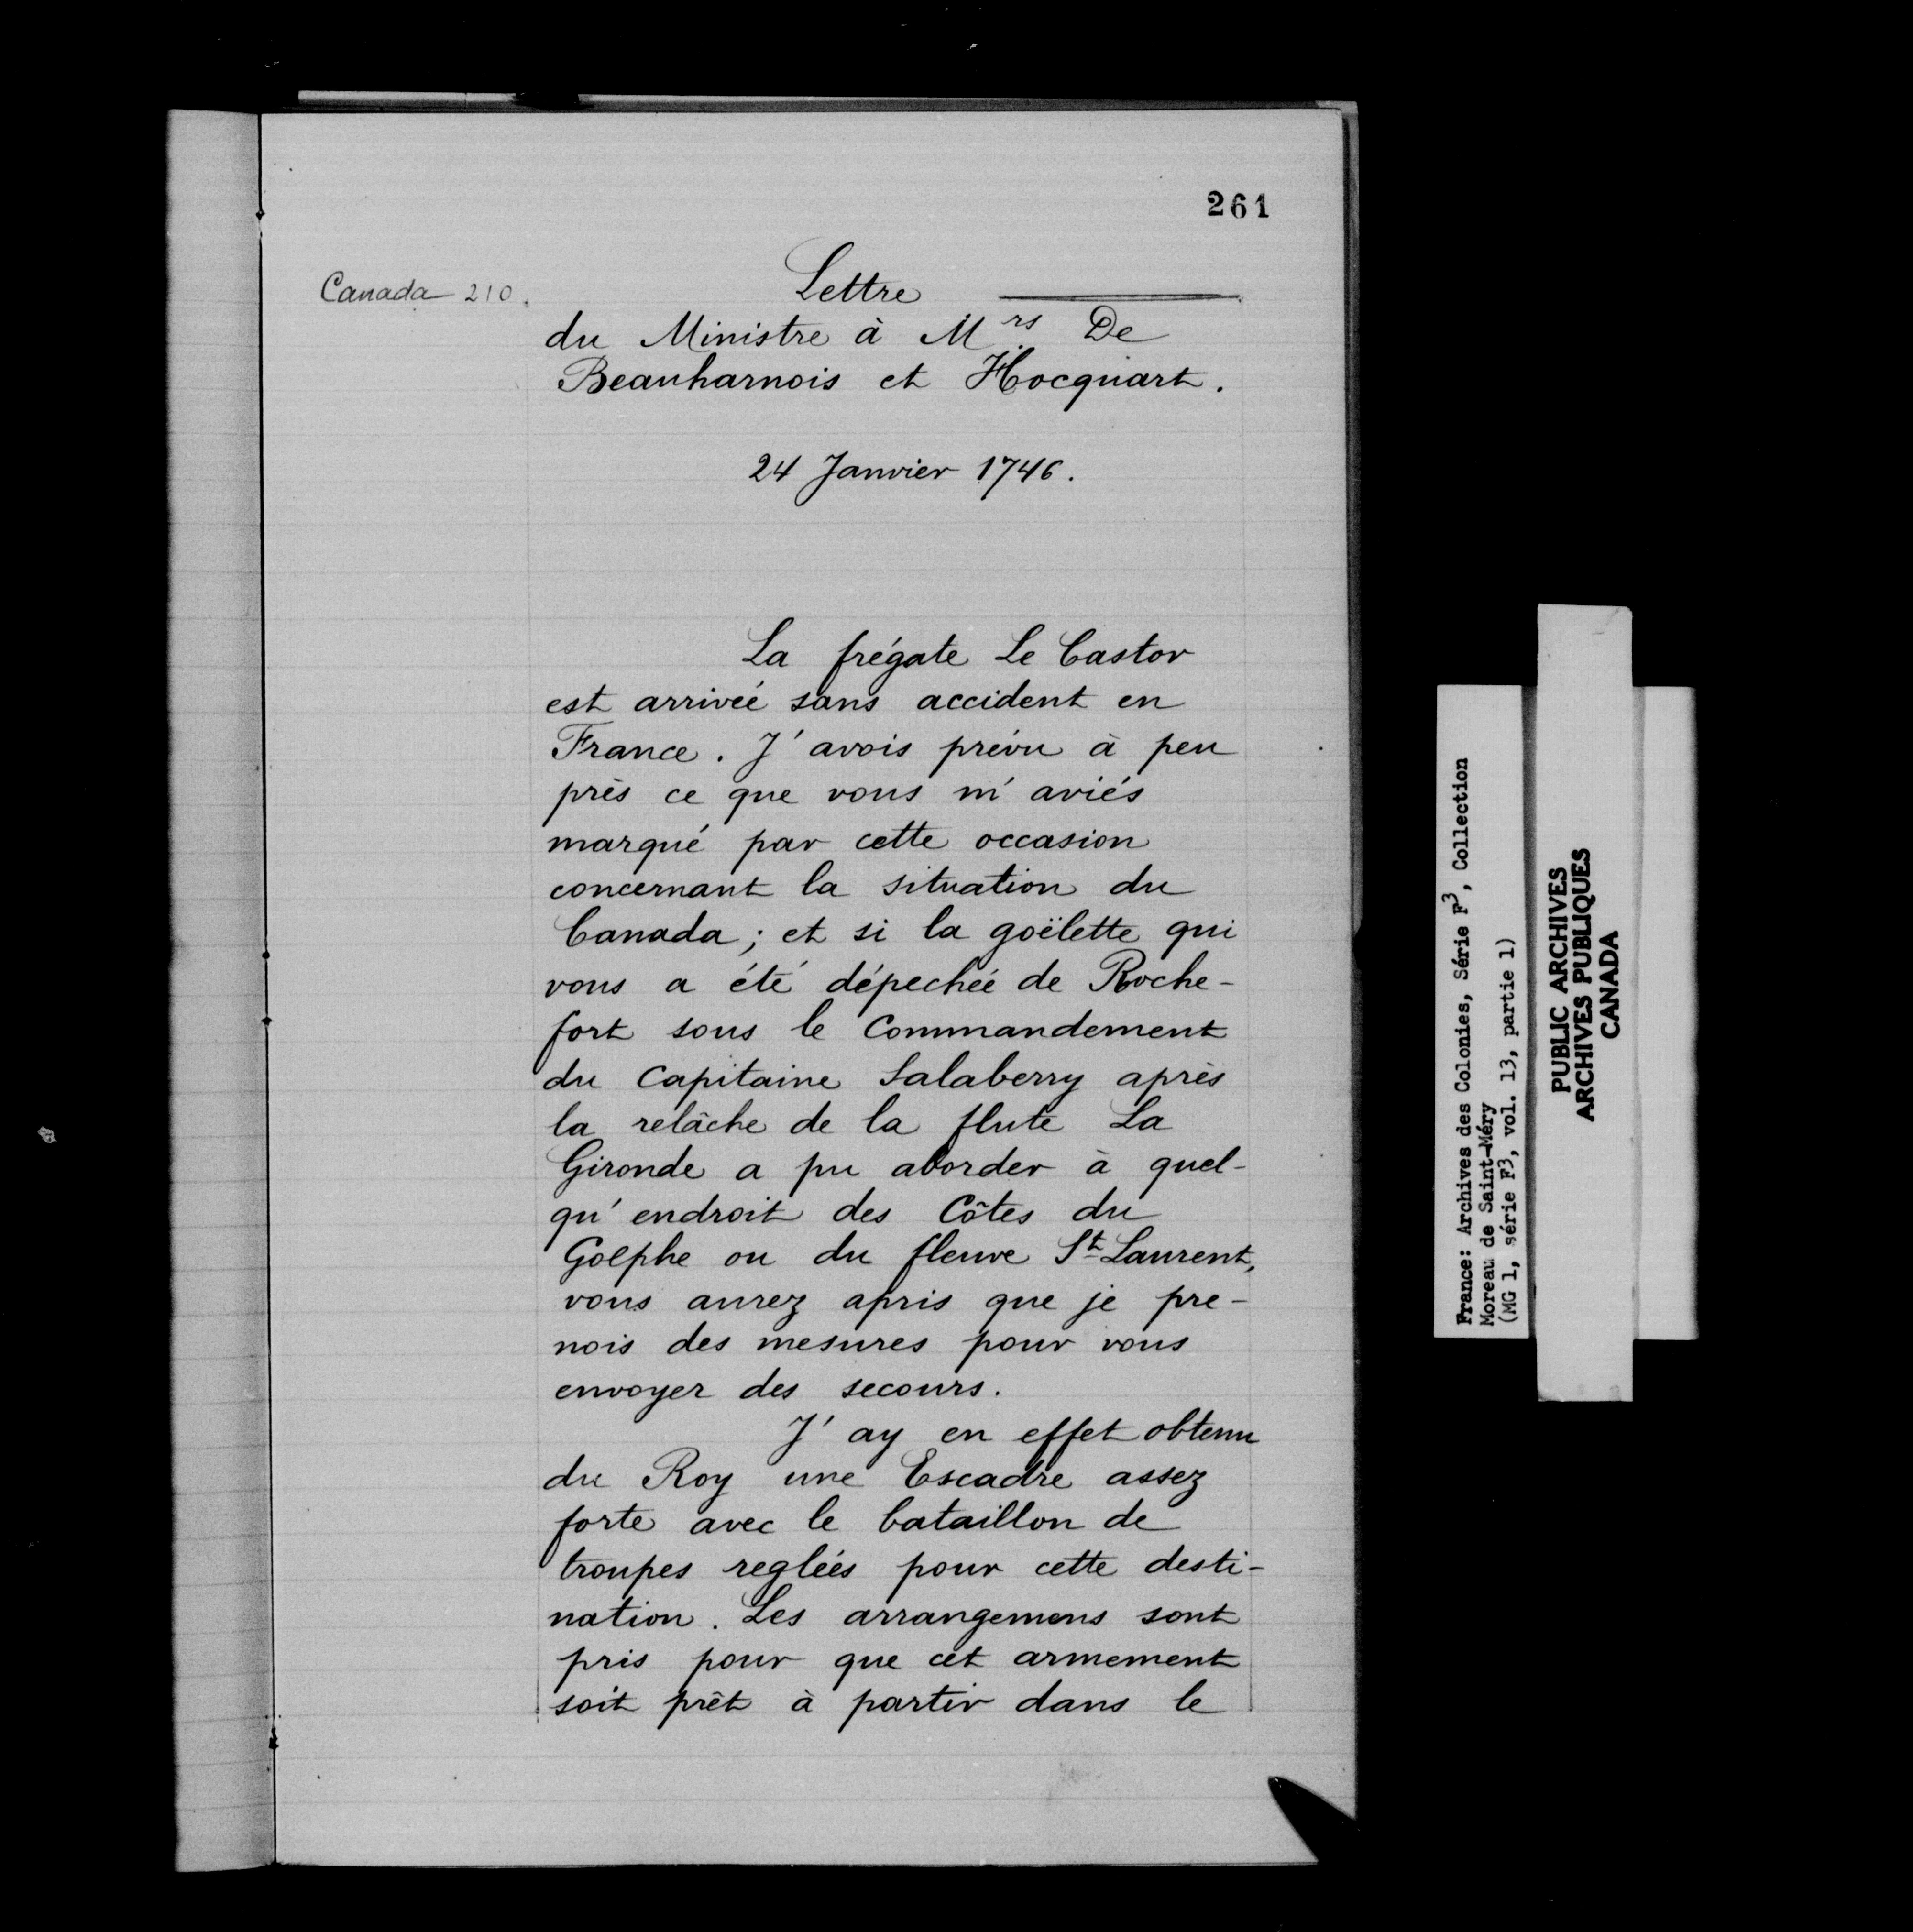 261
Canada 210.
Lettre
du Ministre à Mrs De
Beauharnois et Hocquart.
24 Janvier 1746.
La frégate Le Castor
est arrivée sans accident en
France. J'avois prévu à peu
près ce que vous m'aviés
marqué par cette occasion
concernant la situation du
Canada; et si la goëlette qui
vous a été dépechée de Roche-
fort sous le Commandement
du Capitaine Salaberry après
la relâche de la flute La
Gironde a pu aborder à quel-
qu'endroit des Côtes du
Golphe ou du fleuve St Laurent,
vous aurez apris que je pre-
nois des mesures pour vous
envoyer des secours.
J'ay en effet obtenu
du Roy une Escadre assez
forte avec le bataillon de
troupes reglées pour cette desti-
nation. Les arrangemens sont
pris pour que cet armement
soit prêt à partir dans le
France: Archives des Colonies, Série F3, Collection
Moreau de Saint-Méry
(MG 1, série F3, vol. 13, partie 1)
PUBLIC ARCHIVES
ARCHIVES PUBLIQUES
CANADA